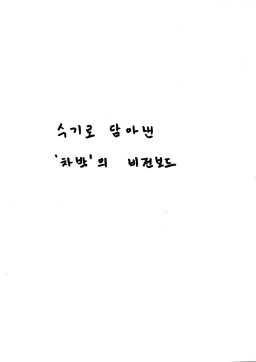 수기로 담아낸
'차밪'의 비전보드